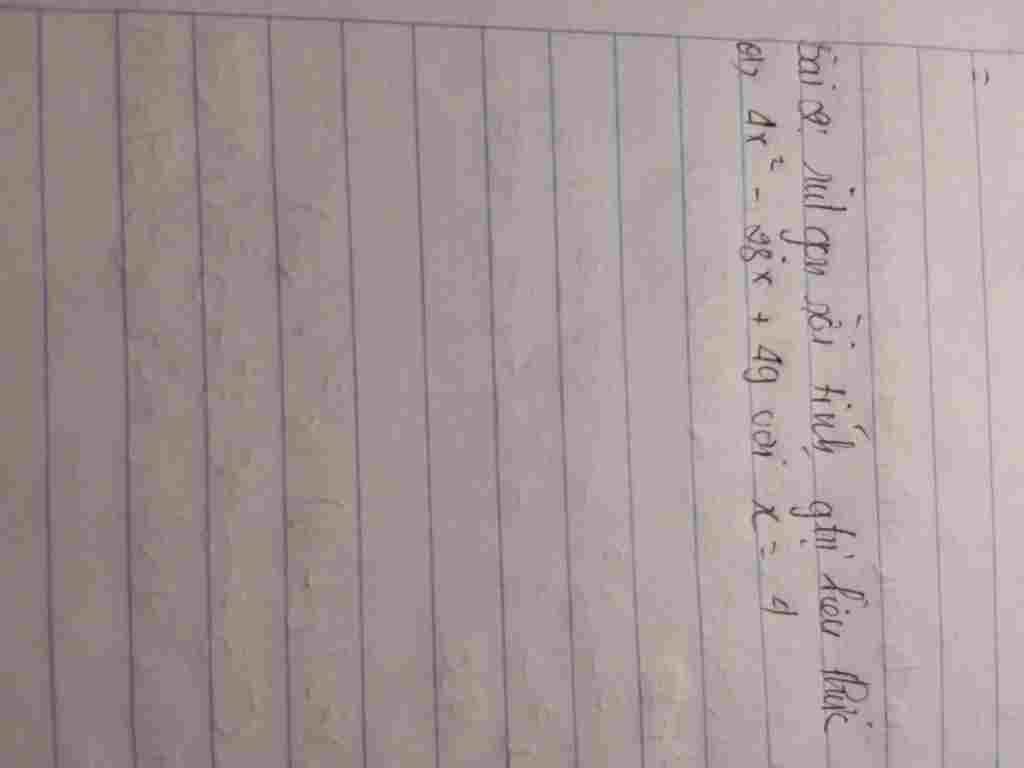 =
bài 2: rút gọn rồi tính gtrị biểu thức
a, 4x² - 28x + 49 với x = 4